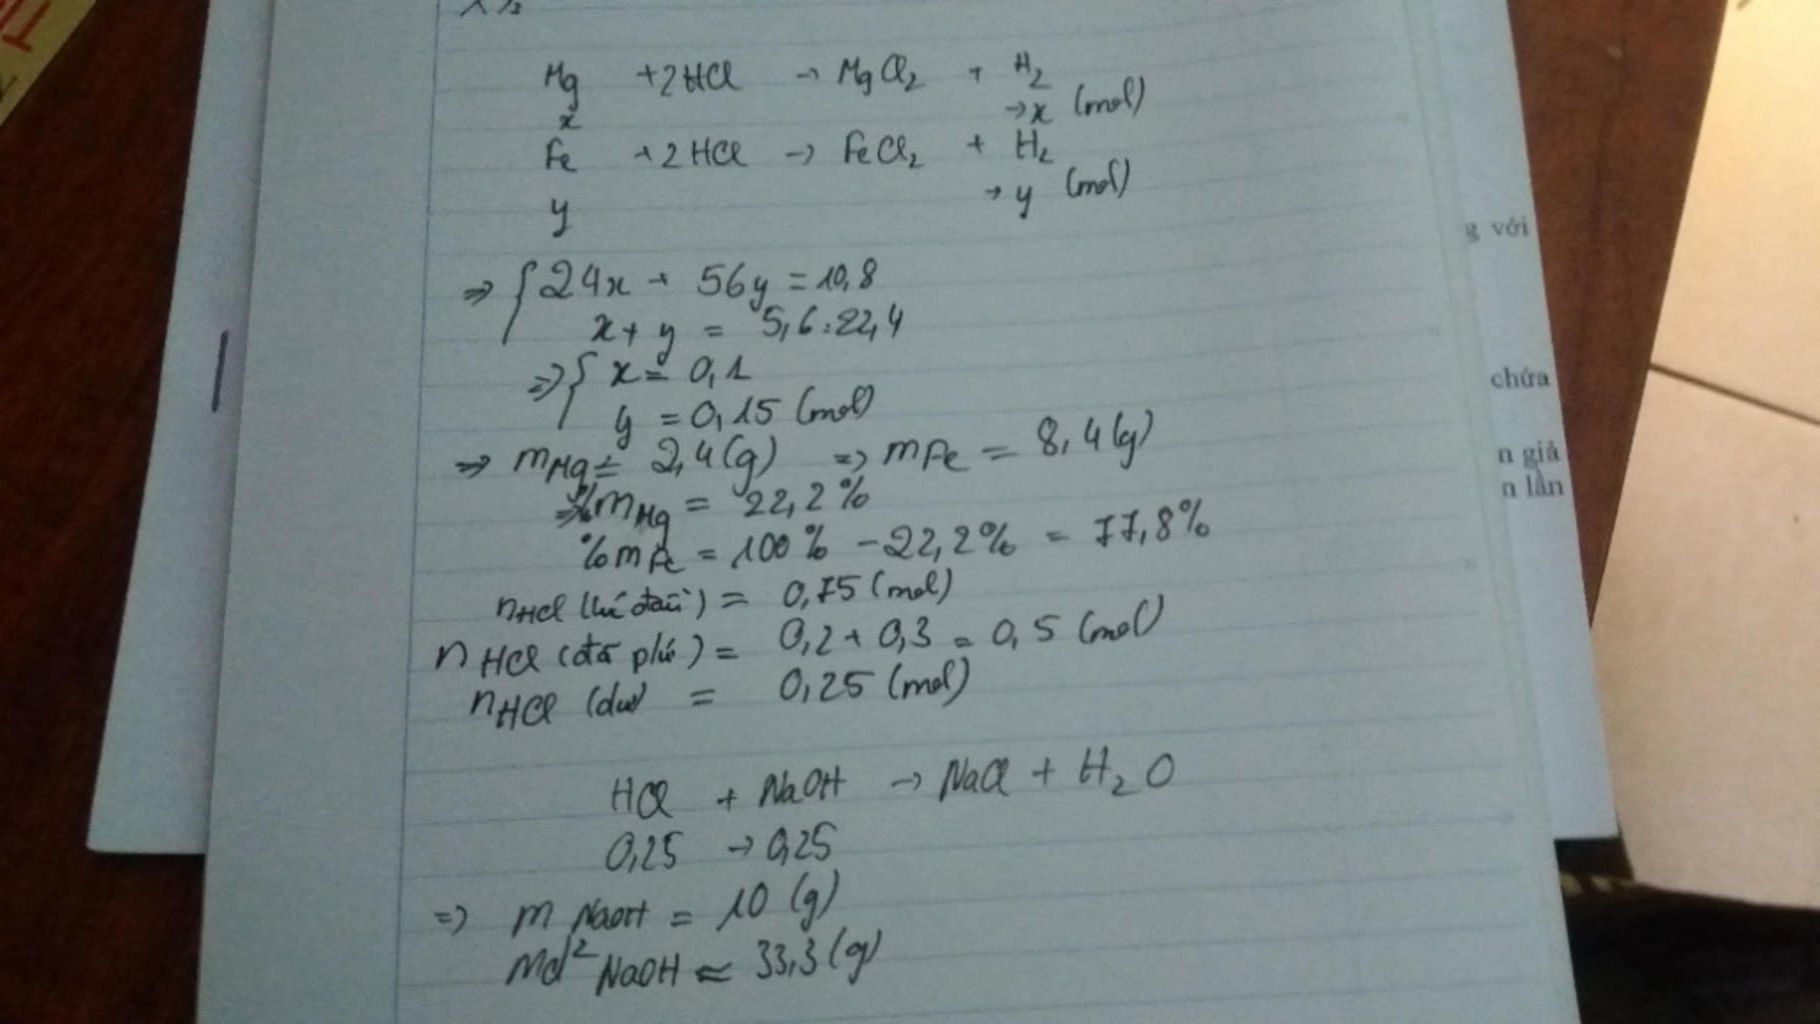 Mg + 2HCl → MgCl2 + H2
x → x (mol)
Fe + 2HCl → FeCl2 + H2
y → y (mol)
⇒ { 24x + 56y = 10,8
x + y = 5,6 : 22,4
⇒ { x = 0,1
y = 0,15 (mol)
⇒ mMg = 2,4 (g) ⇒ mFe = 8,4 (g)
⇒ %mMg = 22,2%
%mFe = 100% - 22,2% = 77,8%
nHCl ( đầu) = 0,75 (mol)
nHCl (đã pứ) = 0,2 + 0,3 = 0,5 (mol)
nHCl (dư) = 0,25 (mol)
HCl + NaOH → NaCl + H2O
0,25 → 0,25
⇒ m NaOH = 10 (g)
md² NaOH ≈ 33,3 (g)
g với
chứa
n giả
n lần